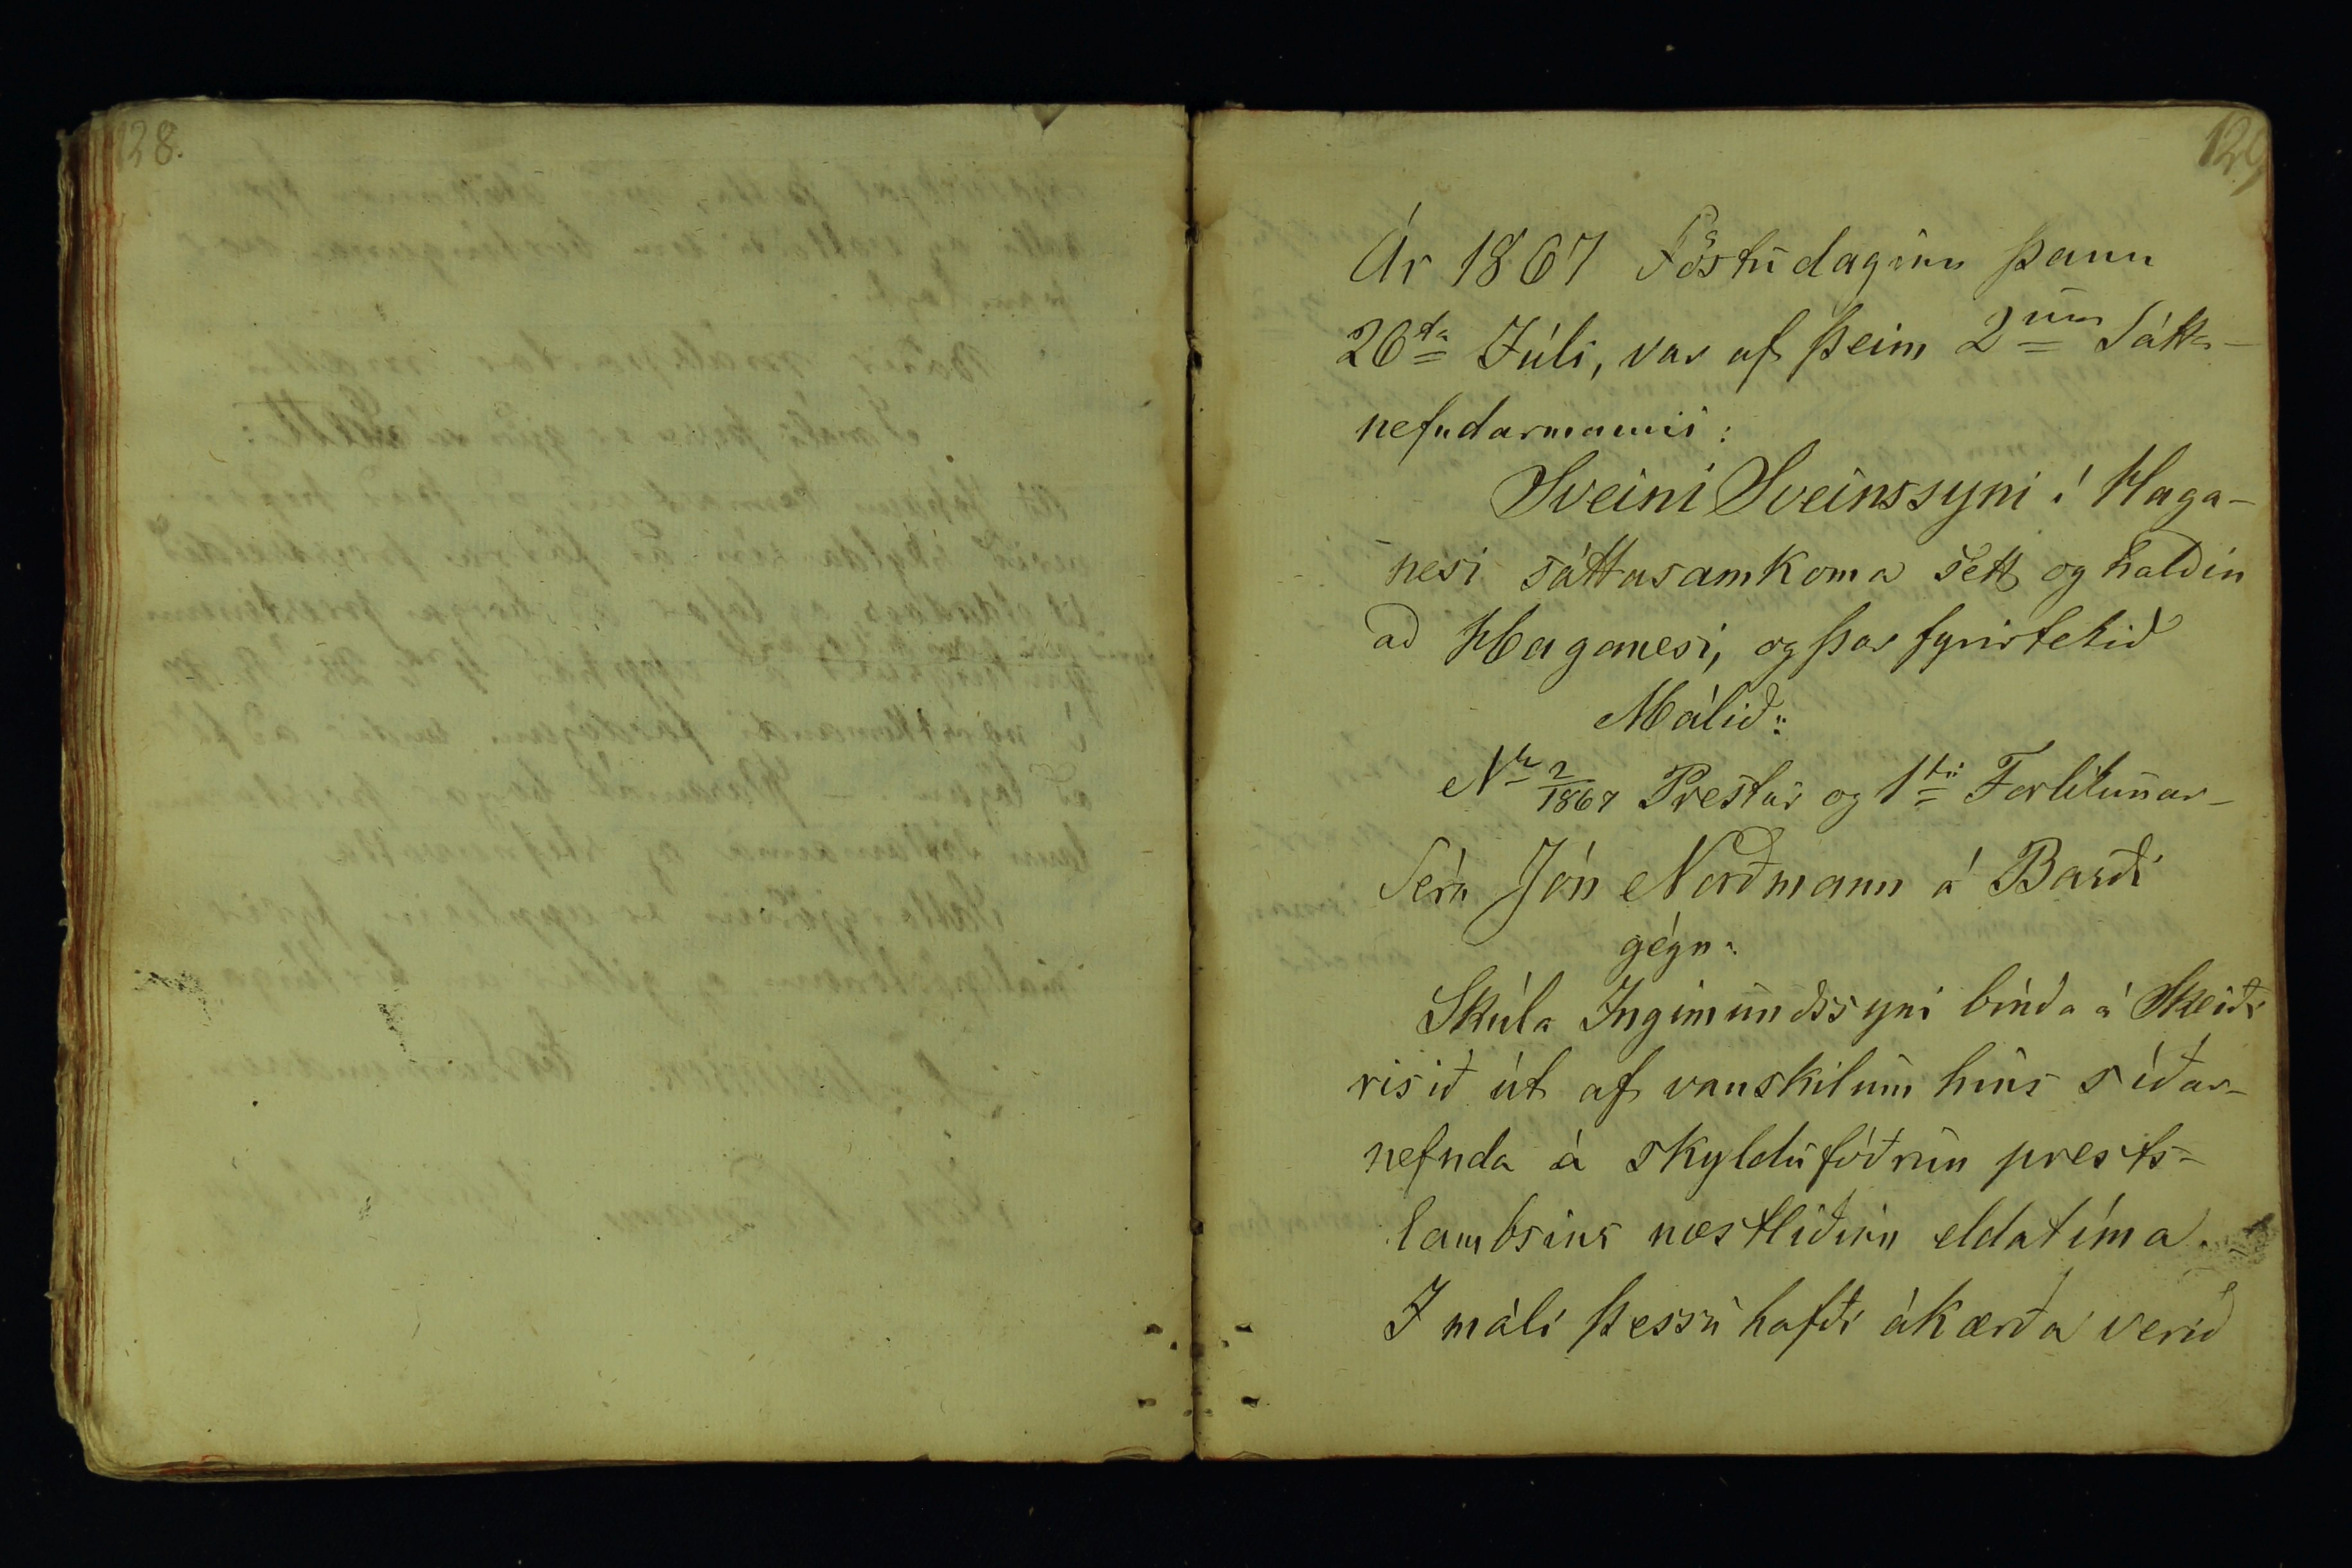 128.
129
Ár 1867 Föstudaginn þann
26ta Júli, var af þeim 2um Sátta-
nefndarmanni:
Sveini Sveinssyni í Haga-
nesi sáttasamkoma sett og haldin
að Haganesi, og þar fyrirtekið
Málið:
No 2/1867 Prestur og 1ti Forlikunar-
Sera Jón Norðmann á Barði
gégn:
Skúla Ingimundssyni bónda á Skeiði
risið út af vanskilum hins síðar-
nefnda á skyldufóðrun prests-
lambsins næstliðinn eldatíma.
I máli þessu hafði ákærða verið